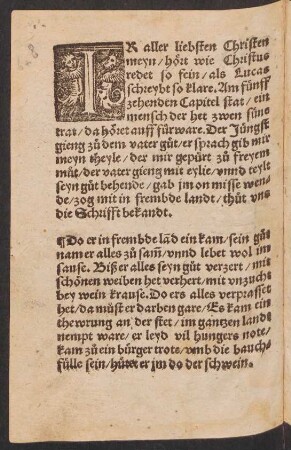 IR aller liebsten Christen
meyn / hört wie Christus
redet so fein / als Lucas
schreybt so klare. Am fünff
zehenden Capitel stat / ein
mensch der het zwen süne
trat / da höret auff fürware. Der Jüngst
gieng zů dem vater gůt / er sprach gib mir
meyn theyle / der mir gepürt zů freyem
můt / der vater gieng mit eylie / vnnd teylt
seyn gůt behende / gab jm on misse wen-
de / zog mit in frembde landt / thůt vns
die Schrifft bekandt.
¶ Do er in frembde lãd ein kam / sein gůt
nam er alles zů sam̃ / vnnd lebet wol im
sause. Biß er alles seyn gůt verzert / mit
schönen weiben het verhert / mit vnzucht
bey wein krause. Do ers alles verprasset
het / da můst er darben gare / Es kam ein
thewrung an der stet / im gantzen landt
nempt ware / er leyd vil hungers note /
kam zů ein bürger trote / vmb die bauch-
fülle sein / hůtet er jm do der schwein.